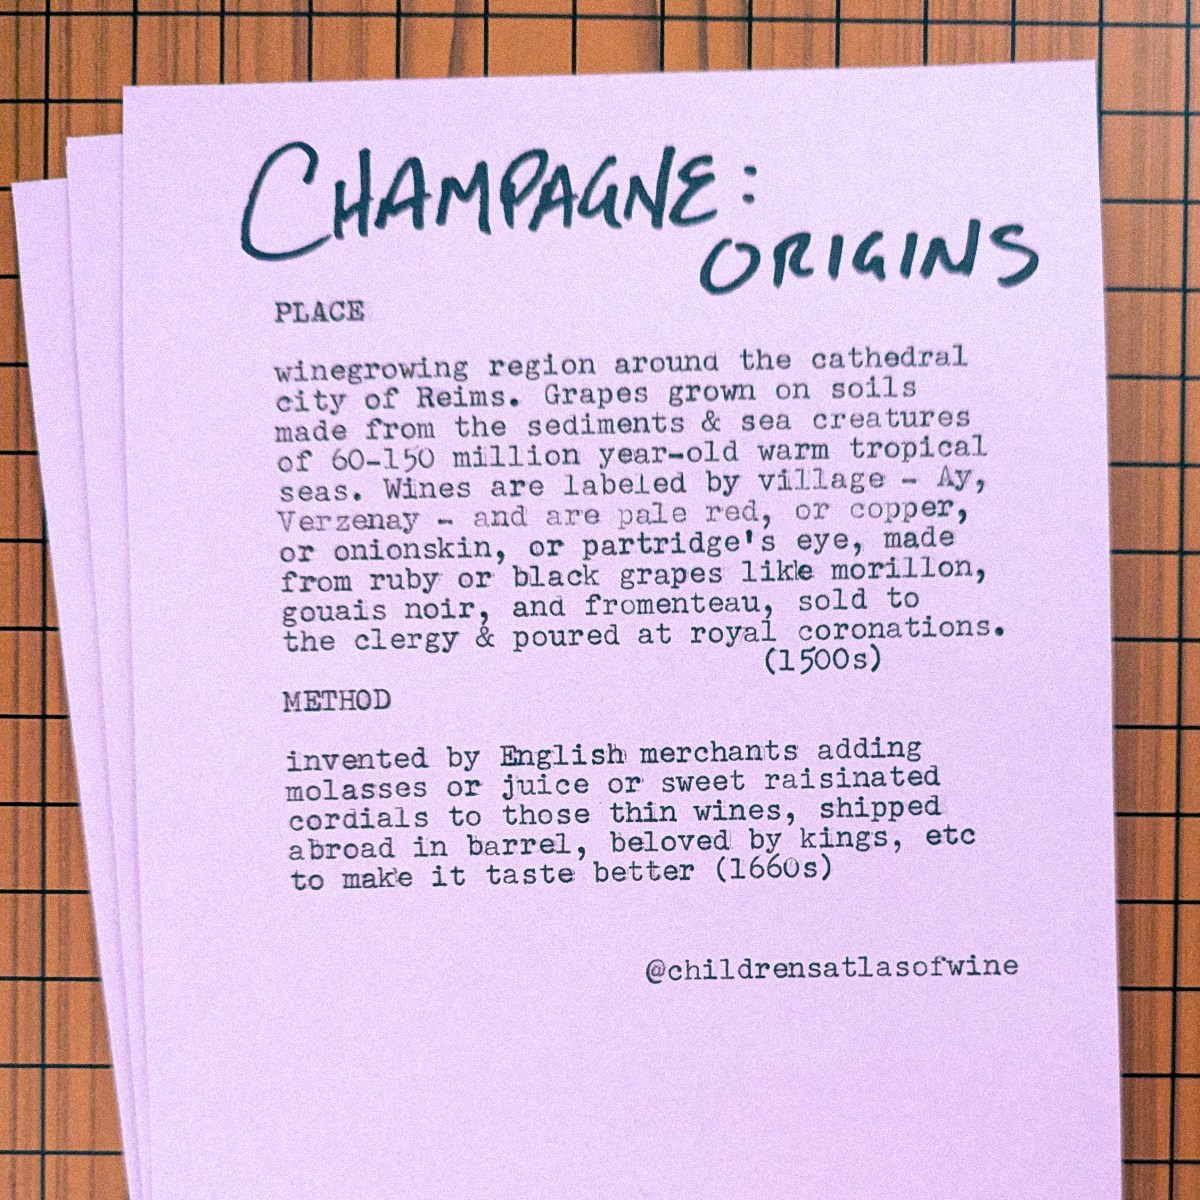 CHAMPAGNE:
ORIGINS
PLACE
winegrowing region around the cathedral
city of Reims. Grapes grown on soils
made from the sediments & sea creatures
of 60-150 million year-old warm tropical
seas. Wines are labeled by village - Ay,
Verzenay - and are pale red, or copper,
or onionskin, or partridge's eye, made
from ruby or black grapes like morillon,
gouais noir, and fromenteau, sold to
the clergy & poured at royal coronations.
(1500s)
METHOD
invented by English merchants adding
molasses or juice or sweet raisinated
cordials to those thin wines, shipped
abroad in barrel, beloved by kings, etc
to make it taste better (1660s)
@childrensatlasofwine